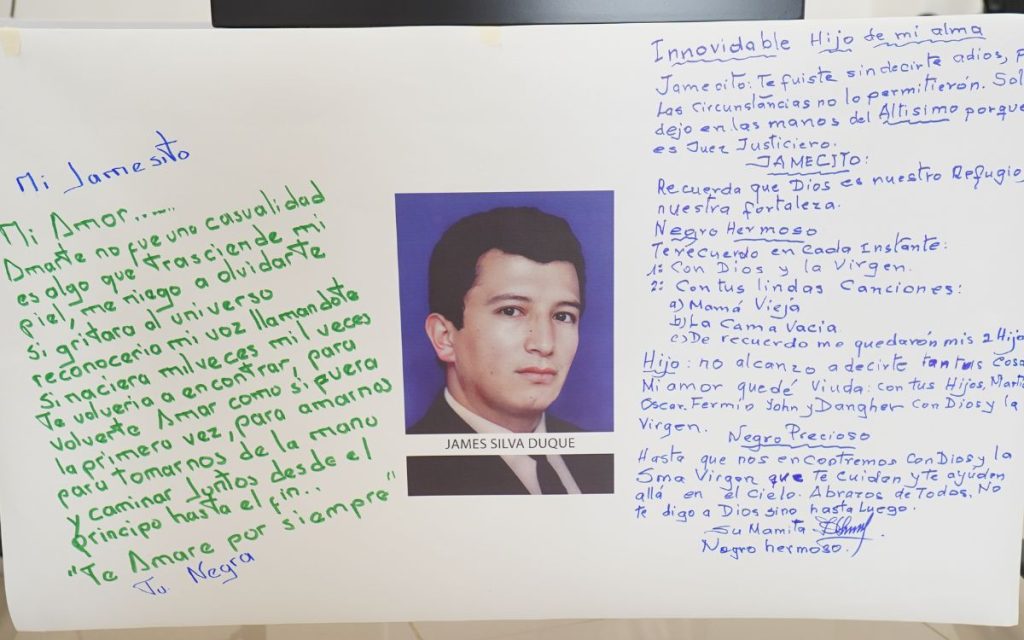 Mi Jamesito
Mi Amor......
Amarte no fue una casualidad
es algo que trasciende mi
piel, me niego a olvidarte
si gritara al universo
reconoceria mi voz llamandote
Sinaciera milveces mil veces
Te volveria a encontrar, para
volverte Amar como si fuera
la primera vez, para amarnos
para tomarnos de la mano
y caminar Juntos desde el
principo hasta el fin...
"Te Amare por siempre"
Tu Negra
JAMES SILVA DUQUE
Innovidable Hijo de mi alma
Jamecito: Te fuiste sin decirte adios, p
Las circunstancias no lo permitierón. Sol
dejo en las manos del Altisimo porque
es Juez Justiciero.
JAMECITO:
Recuerda que Dios es nuestro Refugio,
nuestra fortaleza.
Negro Hermoso
Te recuerdo en cada Instante:
1: Con Dios y la Virgen.
2: Con tus lindas Canciones:
a) Mamá Vieja
b) La Cama Vacia
c) De recuerdo me quedarón mis 2 Hijo
Hijo: no alcanzo a decirte tantas cosa
Mi amor quedé Viuda: con tus Hijos, Marta
Oscar. Fermin John y Dangher con Dios y la
Virgen.
Negro Precioso
Hasta que nos encontremos con Dios y la
Sma Virgen que te Cuiden y te ayuden
allá en el Cielo. Abrazos de Todos. No
te digo a Dios sino hasta Luego.
Su Mamita
Negro hermoso.